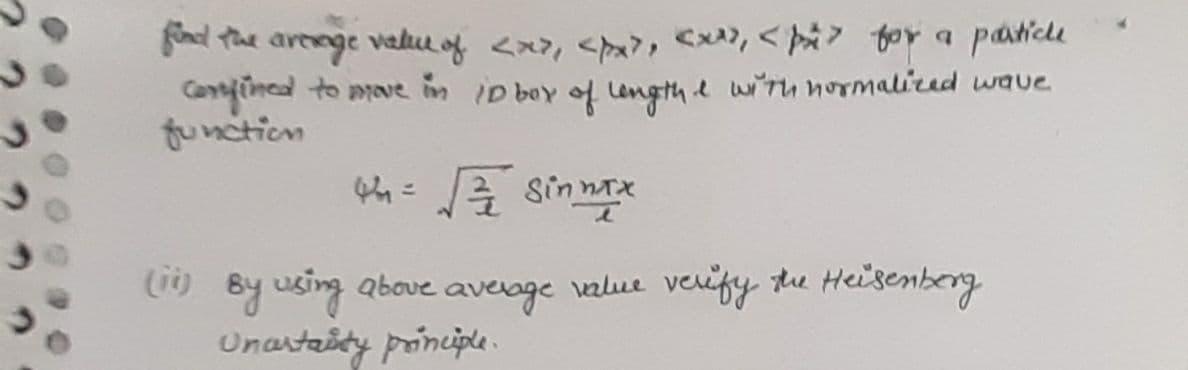 find the average value of <x>, <px>, <x²>, <px²> for a particle
confined to move in 1D box of length l with normalized wave
function
ψn = √2/l sin nπx/l
(ii) By using above average value verify the Heisenberg
Uncertainty principle.